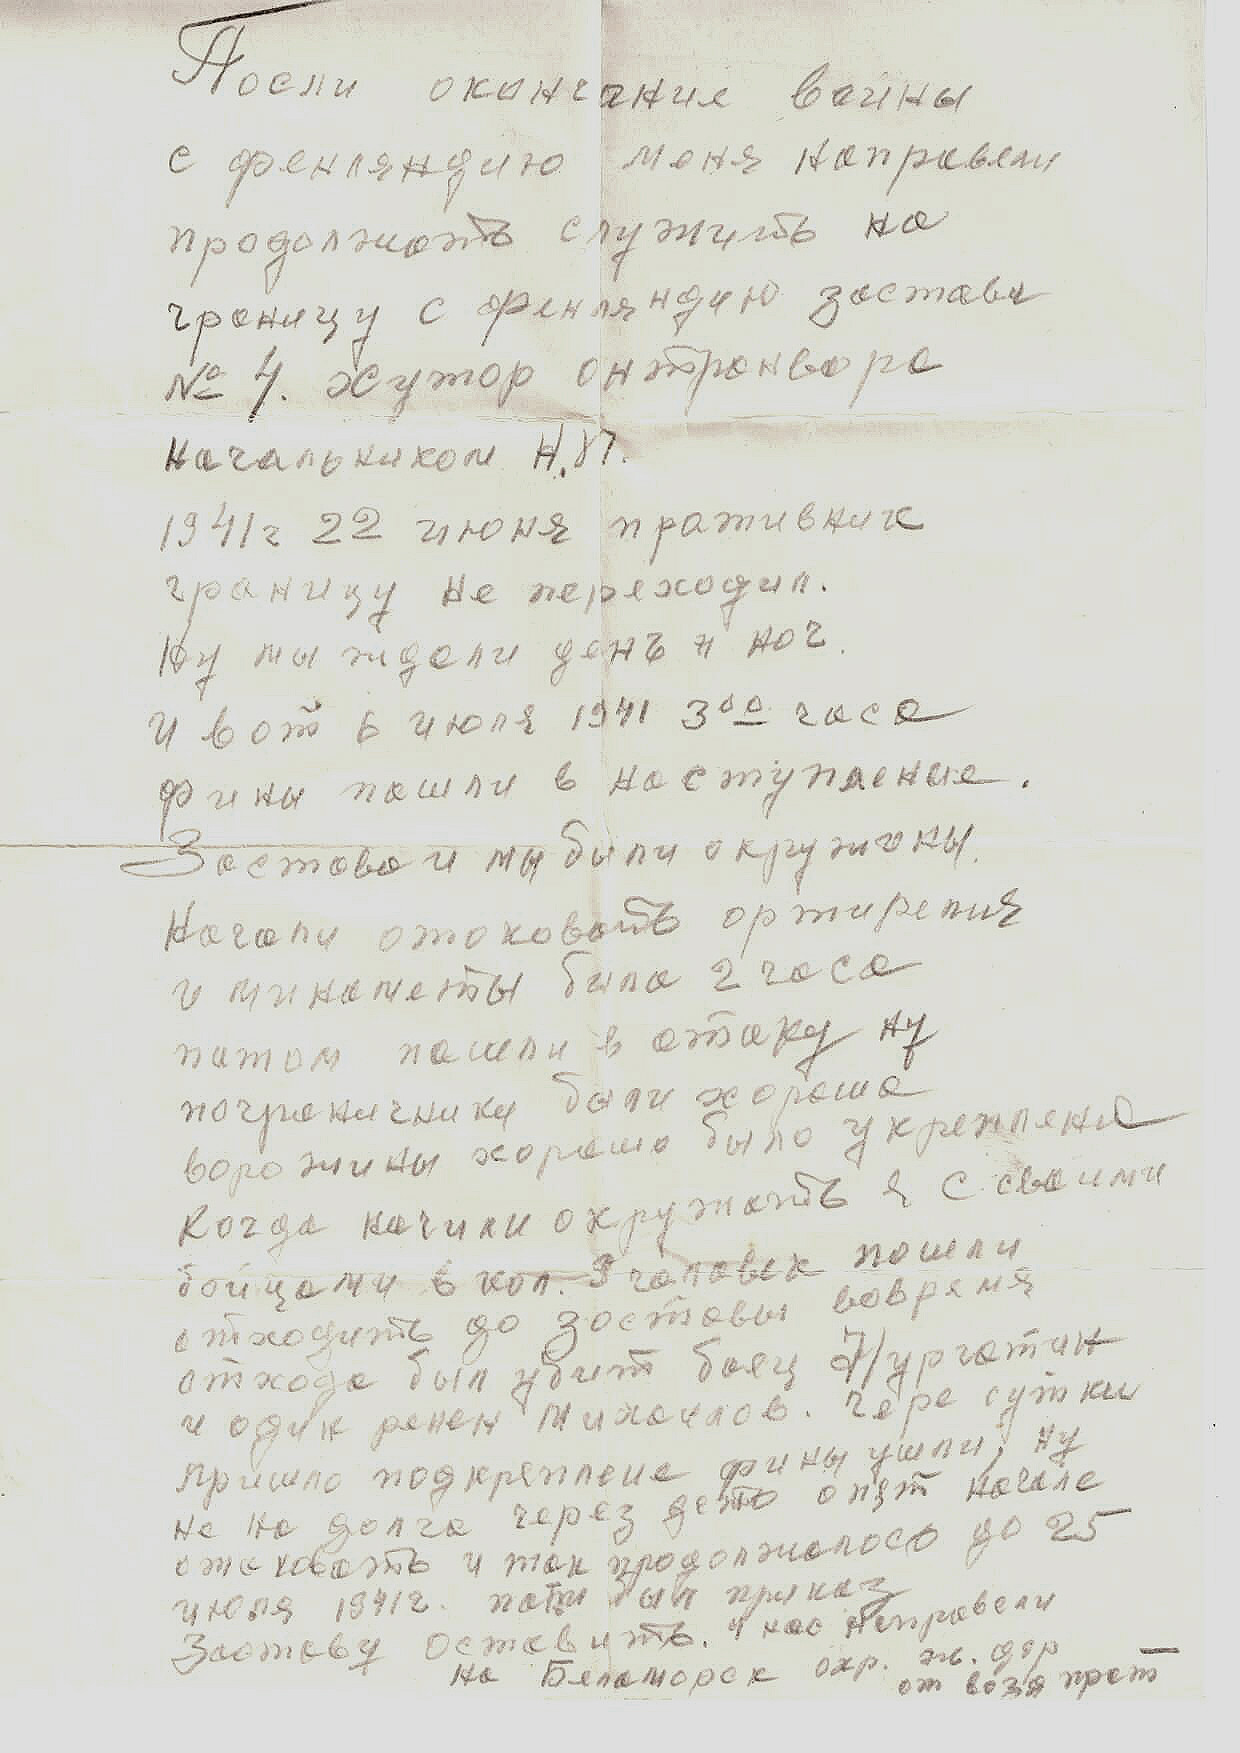 Посли окончание войны
с фенляндию меня направели
продолжать служить на
границу с фенляндию застава
№ 4. хутор онтронвара
начальником Н.П.
1941г 22 июня праживник
границу не переходил.
Ну мы ждали день и ноч.
И вот 6 июля 1941 3⁰⁰ часа
фины пашли в наступление.
Застава и мы были окружины.
Начали отаковать артирелия
и минаметы била 2 часа
патом пашли в атаку ну
пограничники были хораша
воружины хорошо было укреплена
Когда начили окружать я с сваими
бойцами в кол. 3 человек пошли
отходить до заставы вовремя
отхода был убит боец Нургатин
и один ранен Михаилов. Чере сутки
пришло подкреплеие фины ушли, ну
не на долга через опят начале
отаковать и так продолжалось до 25
июля 1941г. был приказ
Заставу оставить. и нас направели
на Беламорск охр. ж. дор
от